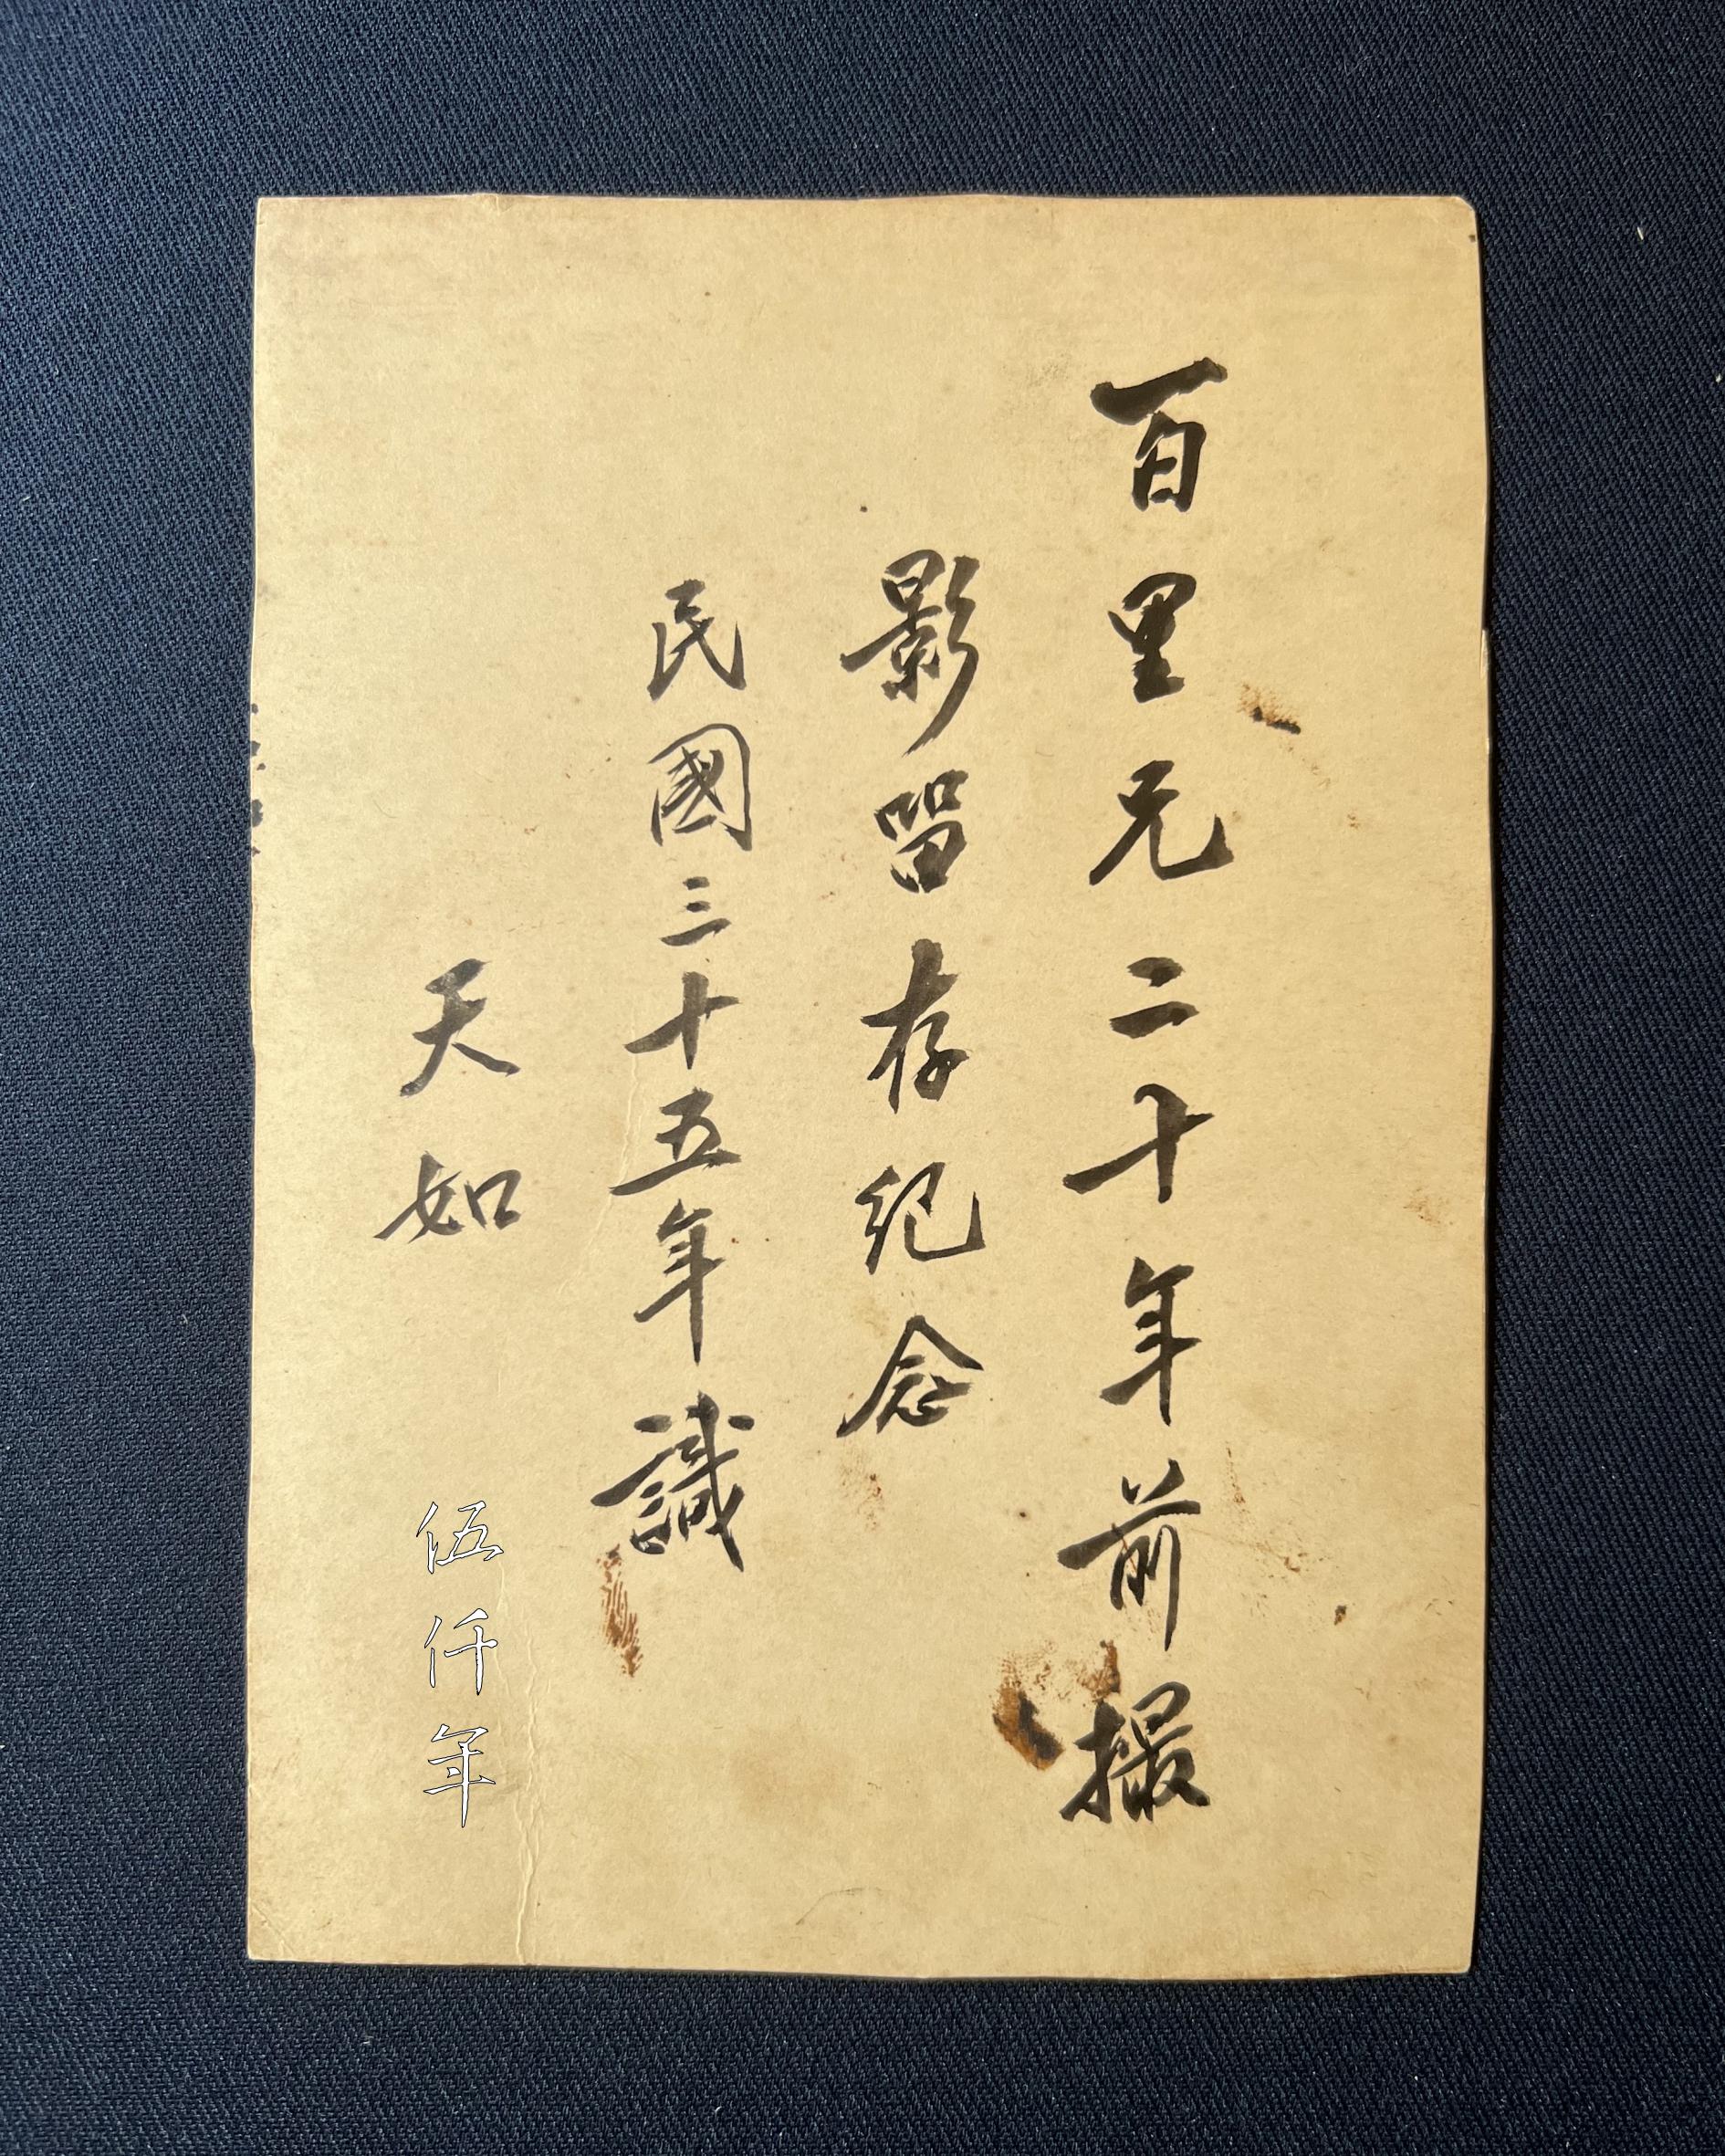 百里兄二十年前撮
影留存纪念
民國三十五年識
天如
伍仟年